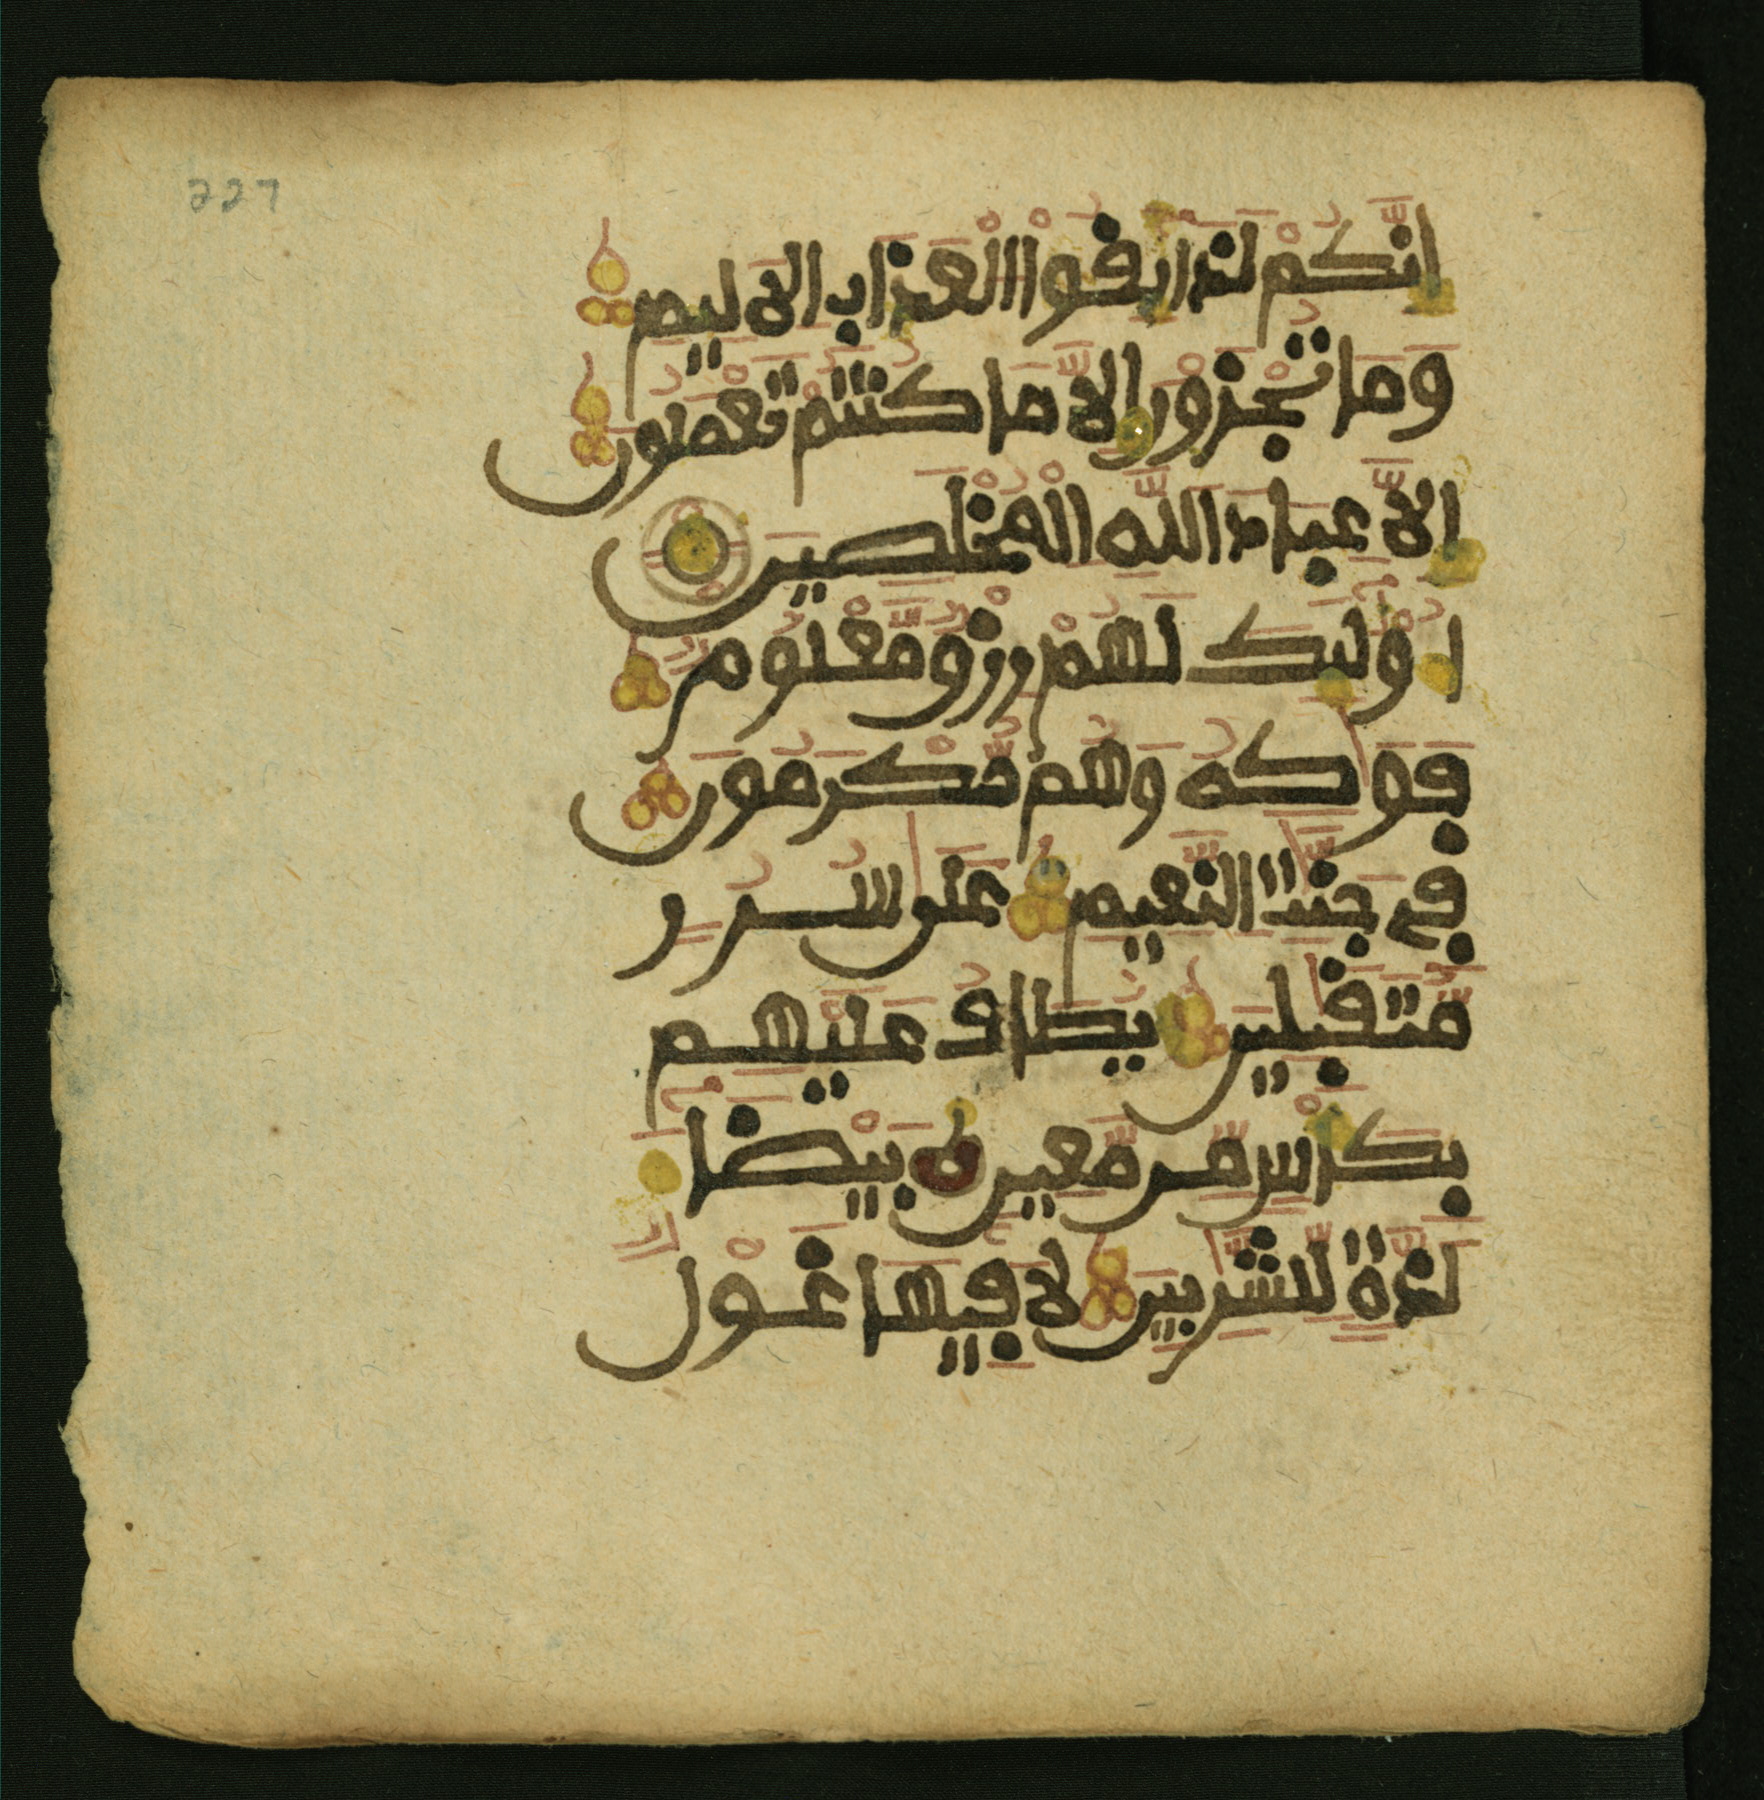 227
إِنَّكُمْ لَذَآئِقُواْ الْعَذَابِ الَالِيمِ
وَمَا تُجْزَوْنَ إِلاَّ مَا كُنتُمْ تَعْمَلُونَ
إِلاَّ عِبَادَ اللَّهِ الْمُخْلَصِينَ
أُوْلَٰئِكَ لَهُمْ رِزْقٌ مَّعْلُومٌ
فَوَٰكِهُ وَهُم مُّكْرَمُونَ
فِے جَنَّٰتِ النَّعِيمِ عَلَىٰ سُرُرٍ
مُّتَقَٰبِلِينَ يُطَافُ عَلَيْهِم
بِكَأْسٍ مِّن مَّعِينٍ بَيْضَآءَ
لَذَّةٍ لِّلشَّٰرِبِينَ لاَ فِيهَا غَوْلٌ